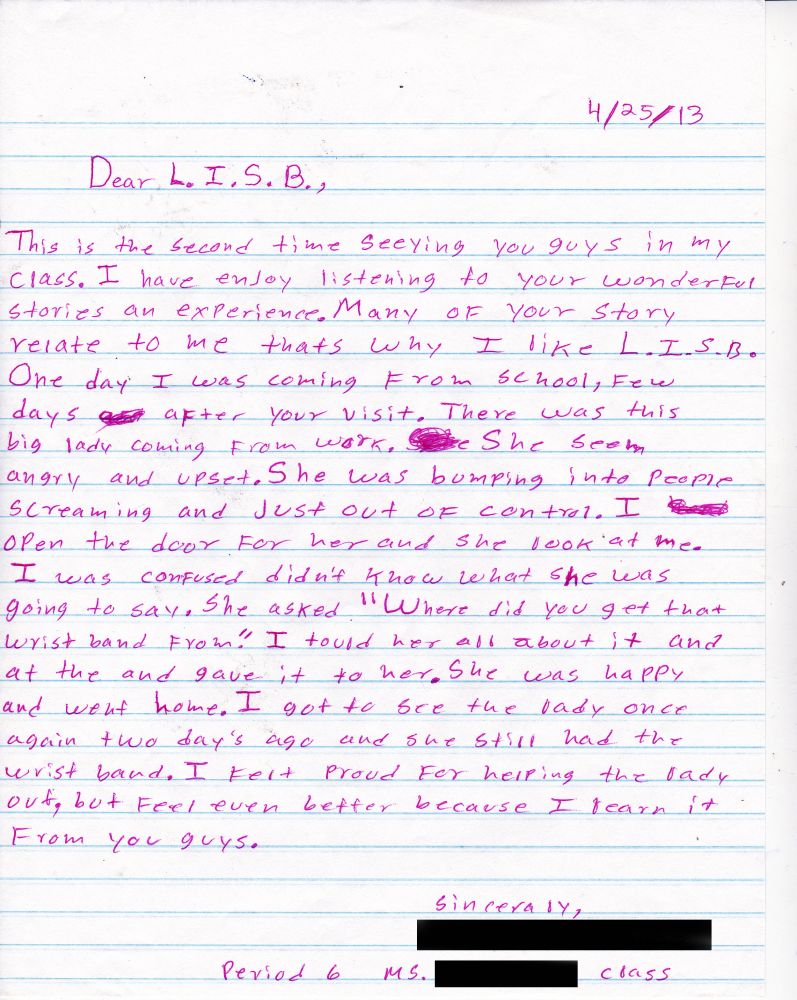 4/25/13
Dear L.I.S.B.,
This is the second time seeying you guys in my
class. I have enjoy listening to your wonderful
stories an experience. Many of your story
relate to me thats why I like L.I.S.B.
One day I was coming from school, few
days after your visit. There was this
big lady coming from work. She seem
angry and upset. She was bumping into people
screaming and just out of control. I
open the door for her and she look at me.
I was confused didn't know what she was
going to say. She asked "Where did you get that
wrist band from." I tould her all about it and
at the and gave it to her. She was happy
and went home. I got to see the lady once
again two day's ago and she still had the
wrist band. I felt proud for helping the lady
out, but feel even better because I learn it
from you guys.
sinceraly,
Period 6 Ms. class